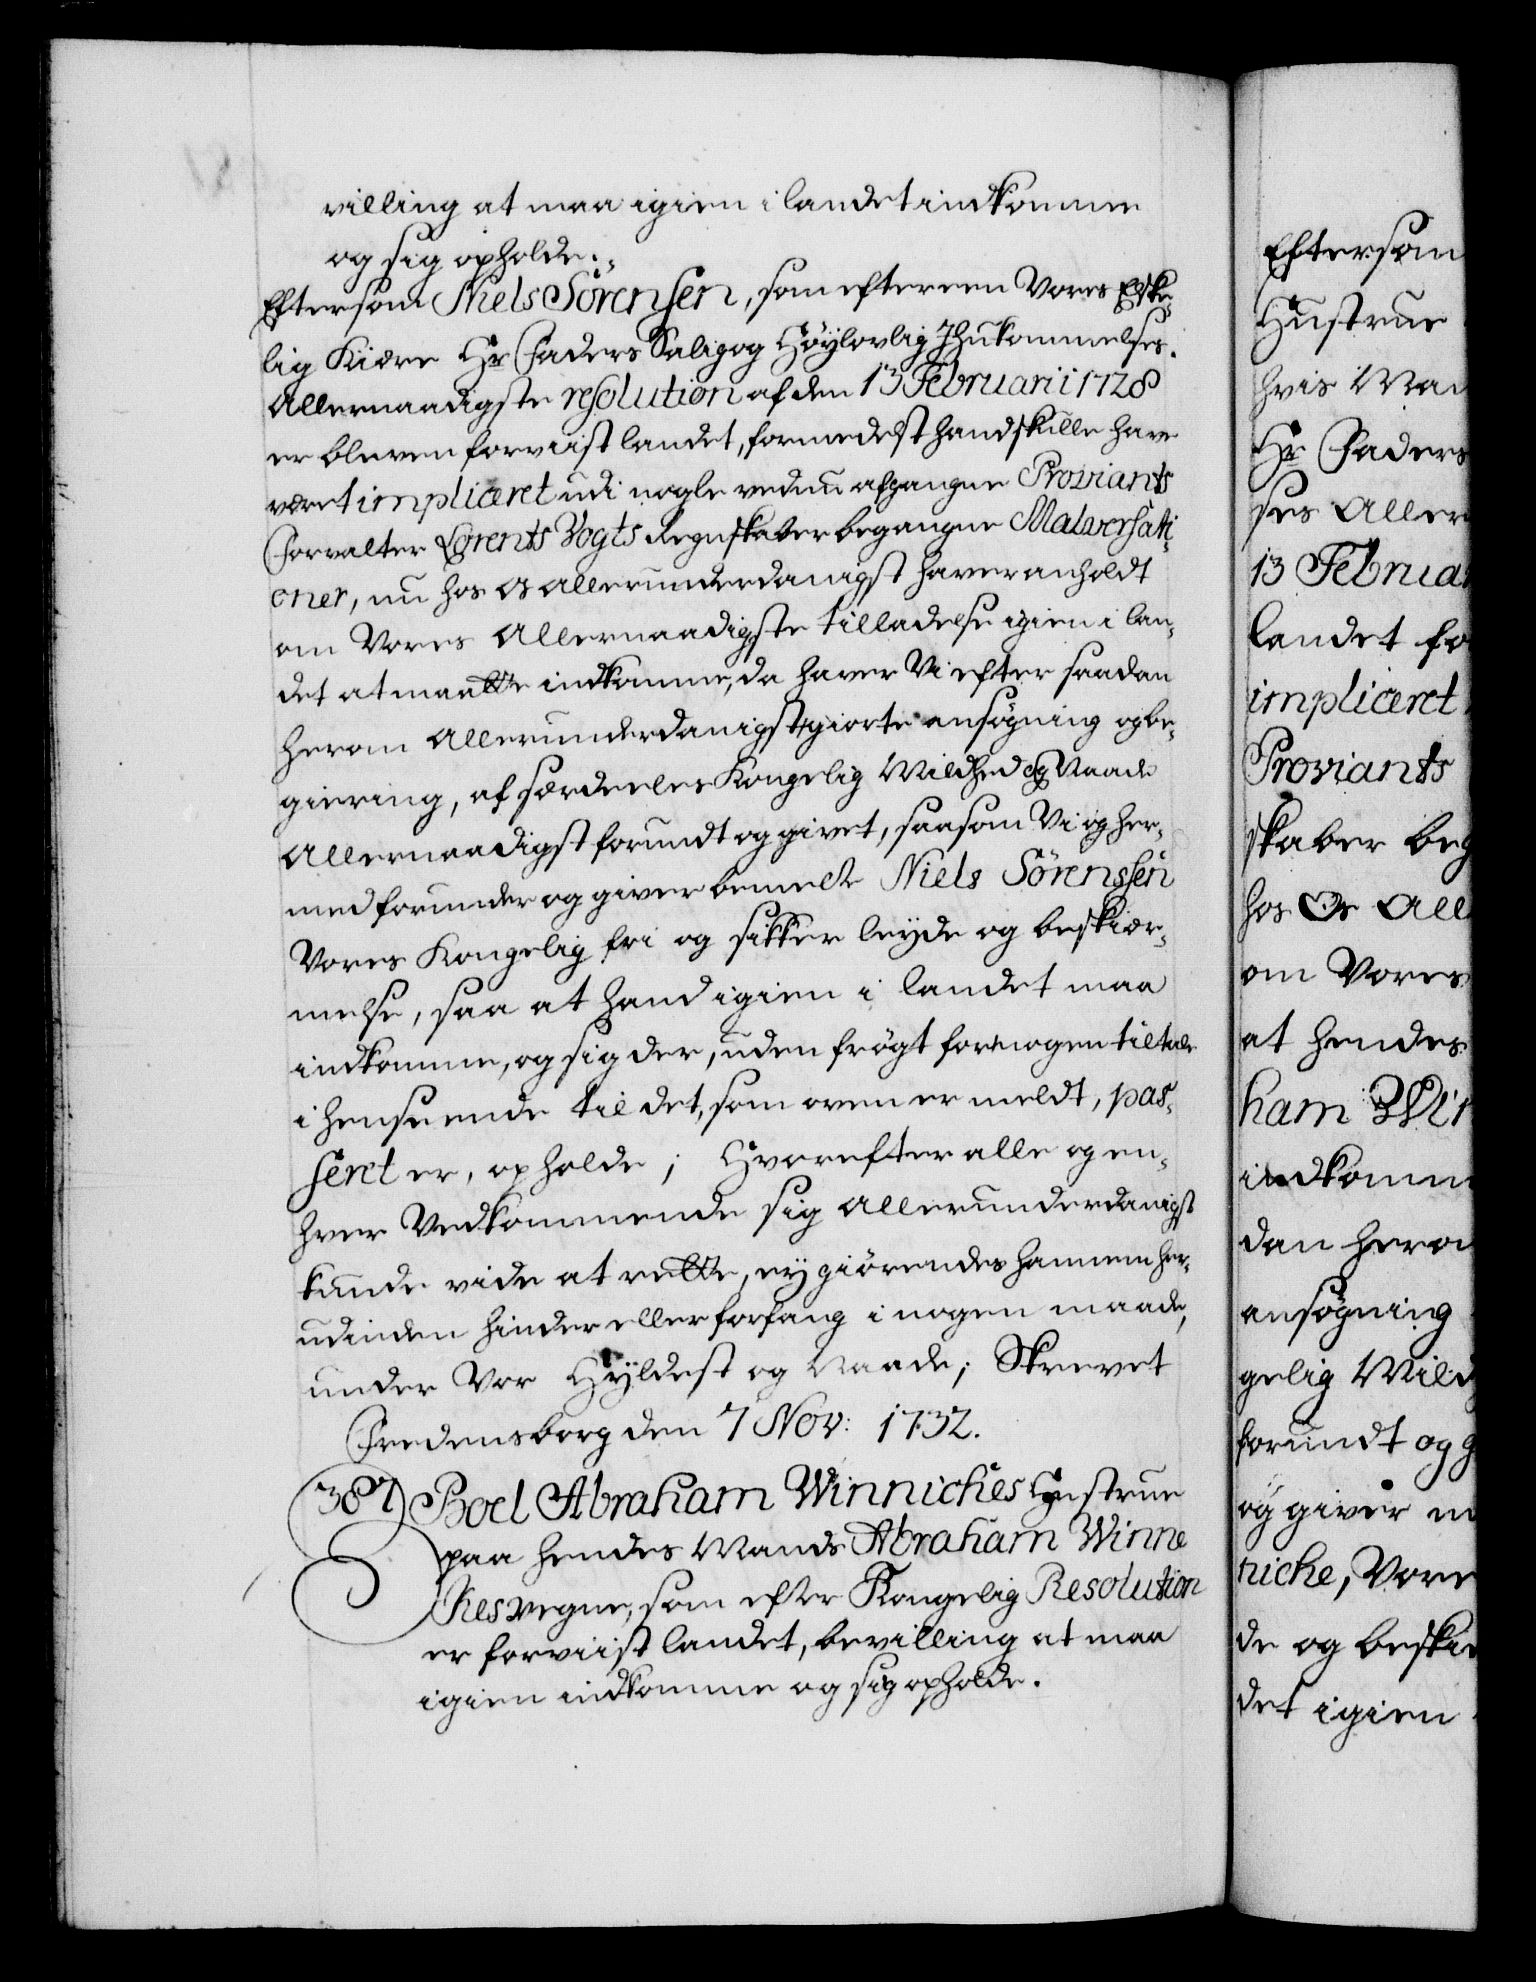 villing at maa igien i landet indkomme
og sig opholde.
Eftersom Niels Sörensen, som efter en Vores Elske-
lig Kiære Hr Faders Salig og Höylovlig Ihukommelses
Allernaadigste resolution af den 13 Februarii 1728
er bleven forviist landet, formedelst hand skulle have
været impliceret udi nogle ved nu afgangne Proviants
Forvalter Lorents Vogts Regnskaber begangne Malversati-
oner, nu hos Os allerunderdanigst haver anholdt
om Vores Allernaadigste tilladelse igien i lan-
det at maatte indkomme, da haver Vi efter saadan
herom allerunderdanigst giorte ansøgning og be-
giering, af særdeeles Kongelig Mildhed og Naade
Allernaadigst forundt og givet, saasom Vi og her-
med forunder og giver bemelte Niels Sörenssen
Vores Kongelig fri og sikker leyde og beskier-
melse, saa at hand igien i landet maa
indkomme, og sig der, uden frögt for nogen tiltale
i henseende til det, som oven er meldt, pas-
seret er, opholde; Hvorefter alle og en-
hver Vedkommende sig allerunderdanigst
kunde vide at rette, ey giörendes hannem her-
udinden hinder eller forfang i nogen maade,
under Vor Hyldest og Naade; Skrevet
Fredensborg den 7 Nov: 1732.
387 Boel Abraham Winniches Hustrue
paa hendes Mands Abraham Winne
ches vegne, som efter Kongelig Resolution
er forviist landet, bevilling at maa
igien indkomme og sig opholde.
Eftersom
Hustrue
hvis Man
Hr Faders
ses Aller
13 Februar
landet fo
impliceret
Proviants
skaber beg
hos Os All
om Vores
at hendes
ham Wi
indkomm
dan hero
ansøgning
gelig Mild
forundt og g
og giver
niche, Vore
de og beskie
det igien